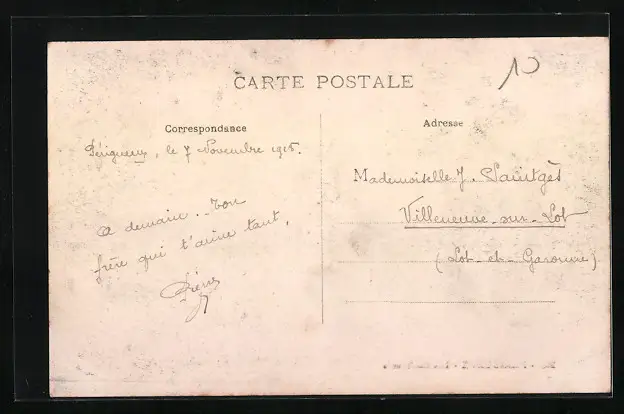 CARTE POSTALE
10
Correspondance
Adresse
Périgueux, le 7 Novembre 1915.
a demain.. ton
frère qui t'aime tant,
Pierre
Mademoiselle J. Saintgès
Villeneuve-sur-Lot
(Lot-et-Garonne)